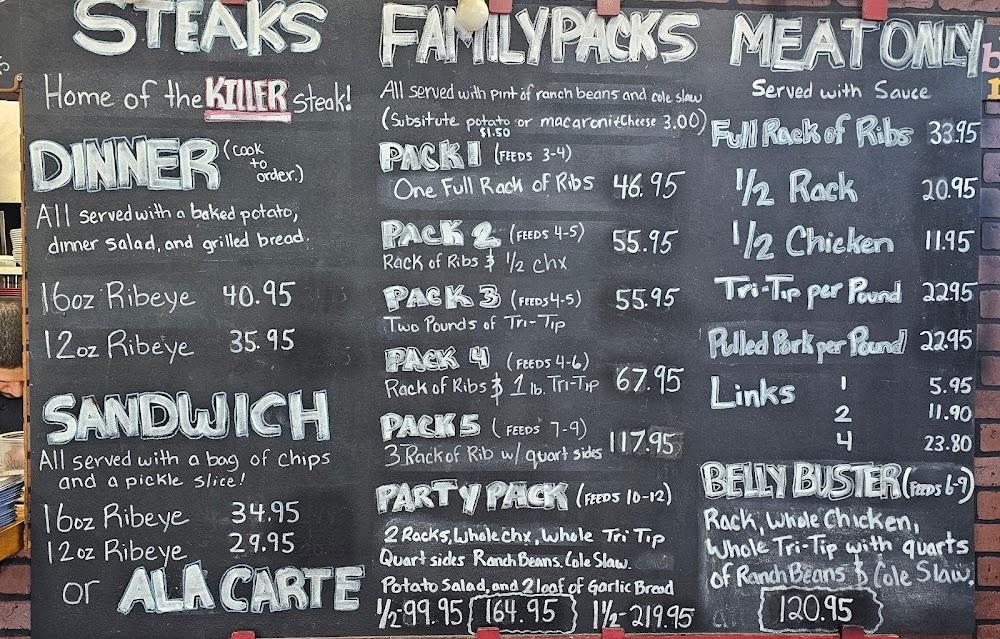 STEAKS
Home of the KILLER steak!
DINNER (cook to order.)
All served with a baked potato,
dinner salad, and grilled bread.
16oz Ribeye 40.95
12oz Ribeye 35.95
SANDWICH
All served with a bag of chips
and a pickle slice!
16oz Ribeye 34.95
12oz Ribeye 29.95
or ALA CARTE
FAMILY PACKS
All served with pint of ranch beans and cole slaw
(Subsitute potato or macaroni & Cheese 3.00)
$1.50
PACK 1 (FEEDS 3-4)
One Full Rack of Ribs 46.95
PACK 2 (FEEDS 4-5) 55.95
Rack of Ribs & 1/2 chx
PACK 3 (FEEDS 4-5) 55.95
Two Pounds of Tri-Tip
PACK 4 (FEEDS 4-6) 67.95
Rack of Ribs & 1 lb. Tri-Tip
PACK 5 (FEEDS 7-9) 117.95
3 Rack of Rib w/ quart sides
PARTY PACK (FEEDS 10-12)
2 Racks, Whole chx, Whole Tri Tip
Quart sides Ranch Beans, Cole Slaw.
Potato Salad, and 2 loaf of Garlic Bread
1/2-99.95 164.95 1 1/2-219.95
MEAT ONLY
Served with Sauce
Full Rack of Ribs 33.95
1/2 Rack 20.95
1/2 Chicken 11.95
Tri-Tip per Pound 22.95
Pulled Pork per Pound 22.95
Links 1 5.95
2 11.90
4 23.80
BELLY BUSTER (FEEDS 6-9)
Rack, Whole Chicken,
Whole Tri-Tip with quarts
of Ranch Beans & Cole Slaw.
120.95